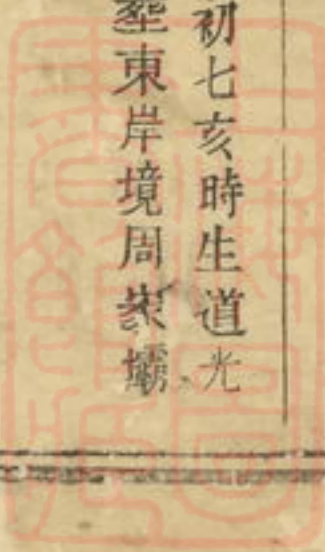 初七亥時生道光
東岸境周家壩